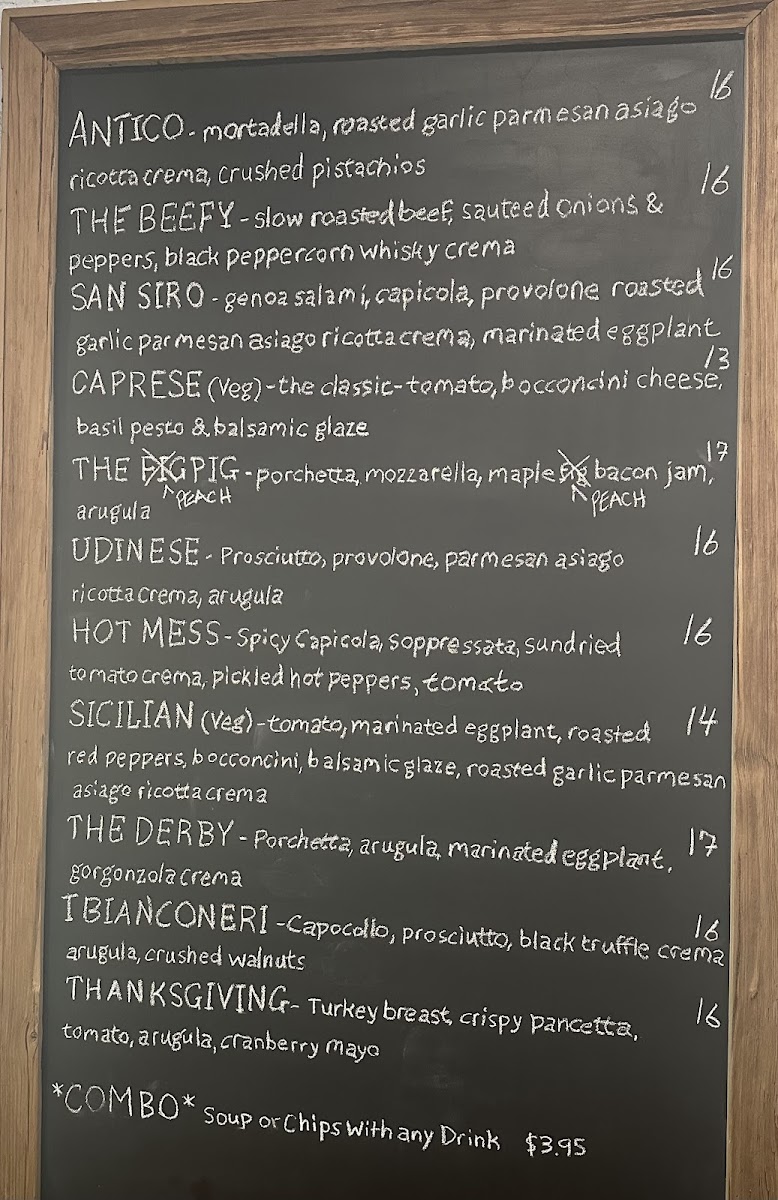 ANTICO - mortadella, roasted garlic parmesan asiago 16
ricotta crema, crushed pistachios
THE BEEFY - slow roasted beef, sauteed onions & 16
peppers, black peppercorn whisky crema
SAN SIRO - genoa salami, capicola, provolone roasted 16
garlic parmesan asiago ricotta crema, marinated eggplant
CAPRESE (Veg) - the classic - tomato, bocconcini cheese, 13
basil pesto & balsamic glaze
THE FIG PIG - porchetta, mozzarella, maple fig bacon jam, 17
PEACH PEACH
arugula
UDINESE - Prosciutto, provolone, parmesan asiago 16
ricotta crema, arugula
HOT MESS - Spicy Capicola, soppressata, sundried 16
tomato crema, pickled hot peppers, tomato
SICILIAN (Veg) - tomato, marinated eggplant, roasted 14
red peppers, bocconcini, balsamic glaze, roasted garlic parmesan
asiago ricotta crema
THE DERBY - Porchetta, arugula, marinated eggplant, 17
gorgonzola crema
I BIANCONERI - Capocollo, prosciutto, black truffle crema 16
arugula, crushed walnuts
THANKSGIVING - Turkey breast, crispy pancetta, 16
tomato, arugula, cranberry mayo
*COMBO* Soup or Chips With any Drink $3.95